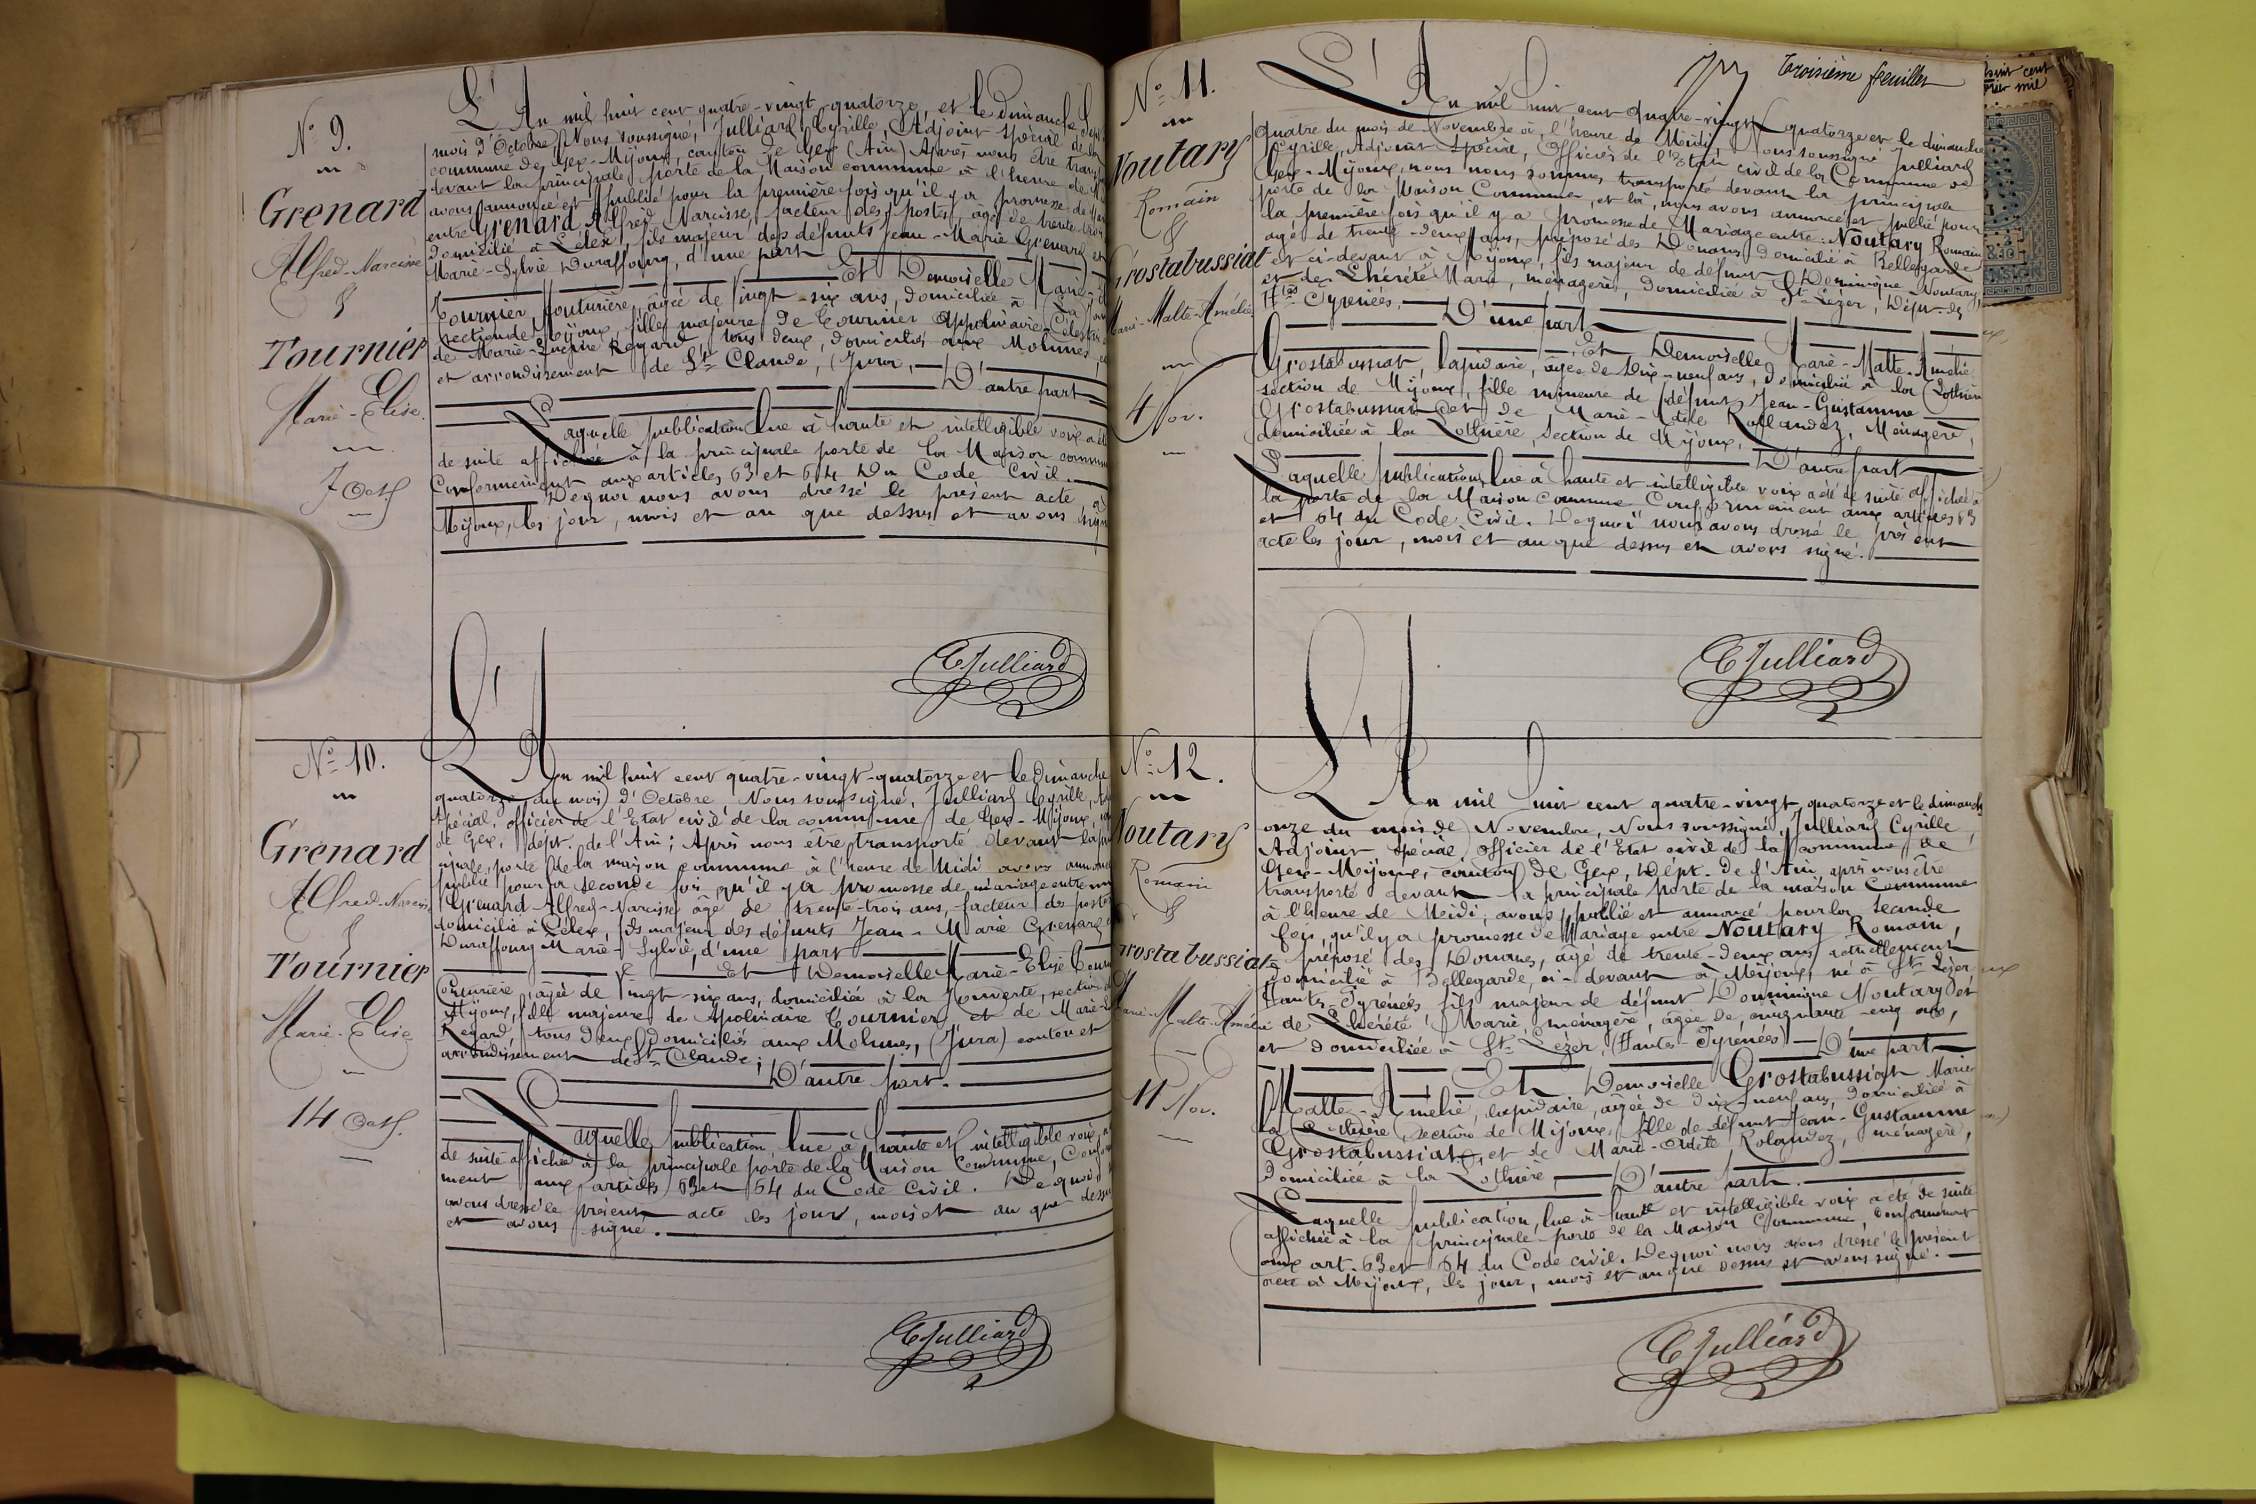 N° 9.
Grenard
Alfred-Narcisse
&
Tournier
Marie-Elise.
7 Oct.
L'An mil huit cent quatre-vingt-quatorze, et le dimanche sept
mois d'Octobre Nous soussigné, Julliard Cyrille, Adjoint spécial de la
commune de Gex-Mijoux, canton de Gex (Ain) Après nous être transp
devant la principale porte de la Maison commune à l'heure de
avons annoncé et publié pour la première fois qu'il y a promesse de
entre Grenard Alfred Narcisse, facteur des postes, âgé de trente-trois
domicilié à Lélex, fils majeur des défunts Jean-Marie Grenard et
Marie-Sylvie Duraffourg, d'une part
Et Demoiselle Marie-
Tournier, couturière, âgée de vingt-six ans, domiciliée à la
section de Mijoux, fille majeure de Tournier Appolinaire-Célestin
de Marie- Regard, tous deux, domiciliés aux Molunes,
et arrondissement de St Claude, (Jura,
D'autre part
Laquelle publication lue à haute et intelligible voix a été
de suite affichée à la principale porte de la Maison commune
Conformément aux articles 63 et 64 du Code Civil.
De quoi nous avons dressé le présent acte à
Mijoux, les jour, mois et an que dessus et avons signé
CJulliard
N° 10.
Grenard
Alfred-Narcis
&
Tournier
Marie-Elise
14 Oct.
L'An mil huit cent quatre-vingt-quatorze et le dimanche
quatorze du mois d'Octobre, Nous soussigné, Julliard Cyrille, Adj
spécial, officier de l'Etat civil de la commune de Gex-Mijoux, can
de Gex, dépt. de l'Ain; Après nous être transporté devant la prin
cipale porte de la maison commune à l'heure de Midi avons annoncé
publié pour la seconde fois qu'il y a promesse de mariage entre
Grenard-Alfred-Narcisse âgé de trente-trois ans, facteur des postes
domicilié à Lélex, fils majeur des défunts Jean-Marie Grenard et
Duraffourg Marie-Sylvie, d'une part
Et Demoiselle Marie-Elise Tourn
Couturière, âgée de vingt-six ans, domiciliée à la section de
Mijoux, fille majeure de Apolinaire Tournier et de Marie-
Regard tous deux domiciliés aux Molunes, (Jura) canton et
arrondissement de St Claude;
D'autre part.
Laquelle publication lue à haute et intelligible voix a
de suite affichée à la principale porte de la Maison Commune, Confor
ment aux articles 63 et 64 du Code Civil. De quoi
avons dressé le présent acte les jour, mois et an que dessus
et avons signé.
CJulliard
Troisième feuillet
N° 11.
Noutary
Romain
&
Grostabussiat
Marie-Malte-Amélie
4 Nov.
L'An mil huit cent quatre-vingt quatorze et le dimanche
quatre du mois de Novembre à l'heure de Midi, Nous soussigné Julliard
Cyrille, Adjoint Spécial, Officier de l'Etat civil de la Commune de
Gex-Mijoux, nous nous sommes transporté devant la principale
porte de la Maison Commune, et là, nous avons annoncé et publié pour
la première fois qu'il y a promesse de Mariage entre Noutary Romain
âgé de trente-deux ans, préposé des Douanes domicilié à Bellegarde
et ci-devant à Mijoux, fils majeur de défunt Dominique Noutary,
et de Lhérété Marie, ménagère, domiciliée à St Lézer, Dépt. des
Htes Pyrénées, D'une part
Et Demoiselle Marie-Malte-Amélie
Grostabussiat, lapidaire, âgée de dix-neuf ans, domiciliée à la Lothière
section de Mijoux, fille mineure de défunt Jean-Gustamme
Grostabussiat et de Marie-Odèle Rollandez, Ménagère,
domiciliée à la Lothière, section de Mijoux,
D'autre part
Laquelle publication, lue à haute et intelligible voix a été de suite affichée à
la porte de la Maison commune Conformément aux articles 63
et 64 du Code Civil. De quoi nous avons dressé le présent
acte les jour, mois et an que dessus et avons signé.
CJulliard
N° 12.
Noutary
Romain
&
Grostabussiat
Marie-Malte-Amélie
11 Nov.
L'An mil huit cent quatre-vingt-quatorze et le dimanche
onze du mois de Novembre, Nous soussigné, Julliard Cyrille,
Adjoint spécial, officier de l'Etat civil de la commune de
Gex-Mijoux, canton de Gex, Dépt. de l'Ain, après nous être
transporté devant la principale porte de la maison Commune
à l'heure de Midi, avons publié et annoncé pour la seconde
fois, qu'il y a promesse de Mariage entre Noutary Romain,
préposé des Douanes, âgé de trente-deux ans actuellement
domicilié à Bellegarde, ci-devant à Mijoux, né à St Lézer
Hautes-Pyrénées, fils majeur de défunt Dominique Noutary et
de Lhérété Marie, ménagère, âgée de cinquante-cinq ans,
et domiciliée à St Lézer, (Hautes-Pyrénées) D'une part
Et Demoiselle Grostabussiat Marie
Malte-Amélie, lapidaire, âgée de dix-neuf ans, domiciliée à
la Lothière, section de Mijoux, fille de défunt Jean-Gustamme
Grostabussiat, et de Marie-Odèle Rolandez, ménagère,
domiciliée à la Lothière, D'autre part.
Laquelle publication, lue à haute et intelligible voix a été de suite
affichée à la principale porte de la Maison Commune, conformément
aux art. 63 et 64 du Code civil. De quoi nous avons dressé le présent
acte à Mijoux, les jour, mois et an que dessus et avons signé.
CJulliard